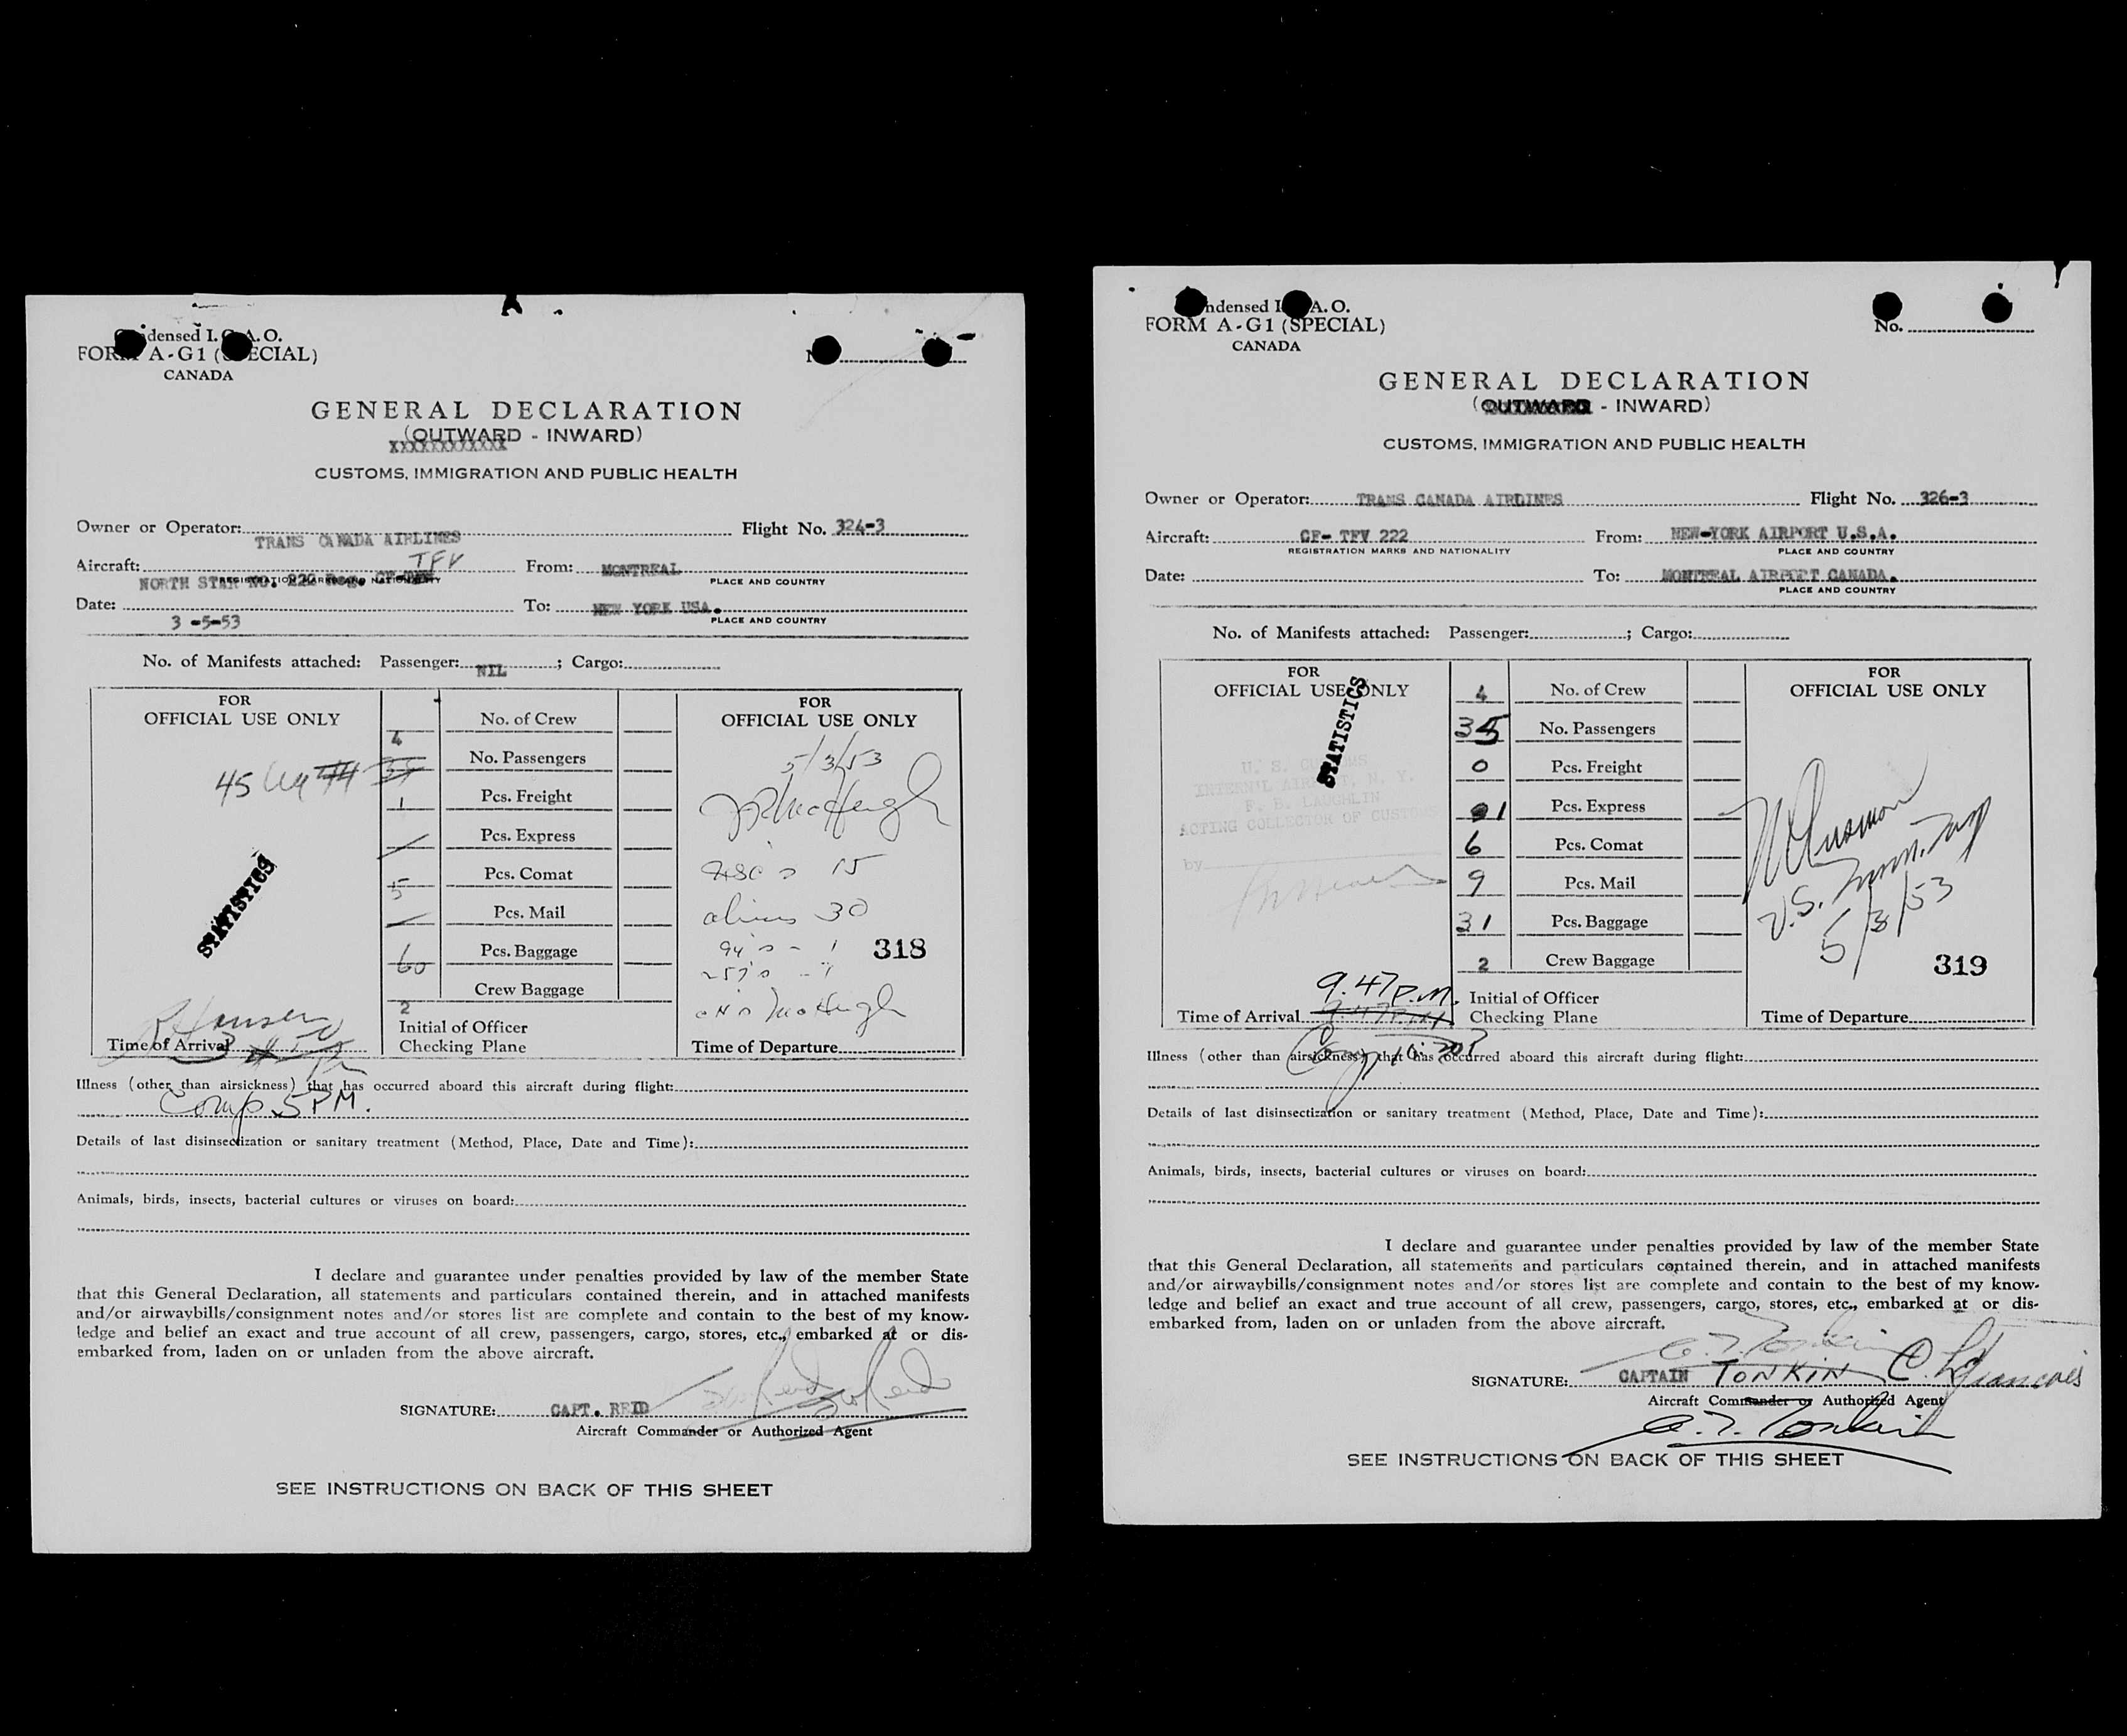 Condensed I.C.A.O.
FORM A-G1 (SPECIAL)
CANADA
GENERAL DECLARATION
(OUTWARD - INWARD)
XXXXXXXXXXXX
CUSTOMS, IMMIGRATION AND PUBLIC HEALTH
Owner or Operator: TRANS CANADA AIRLINES Flight No. 324-3
Aircraft: NORTH STAR NO. 222 Reg. CF- TFV From: MONTREAL
REGISTRATION MARKS AND NATIONALITY PLACE AND COUNTRY
Date: 3 -5-53 To: NEW YORK USA.
PLACE AND COUNTRY
No. of Manifests attached: Passenger: NIL ; Cargo:
FOR
OFFICIAL USE ONLY
45
STATISTICS
Time of Arrival
4 No. of Crew
No. Passengers
1 Pcs. Freight
/ Pcs. Express
5 Pcs. Comat
/ Pcs. Mail
60 Pcs. Baggage
2 Crew Baggage
Initial of Officer
Checking Plane
FOR
OFFICIAL USE ONLY
5/3/53
15
aliens 30
94's - 1
318
Time of Departure
Illness (other than airsickness) that has occurred aboard this aircraft during flight:
Comp 5 PM.
Details of last disinsectization or sanitary treatment (Method, Place, Date and Time):
Animals, birds, insects, bacterial cultures or viruses on board:
I declare and guarantee under penalties provided by law of the member State
that this General Declaration, all statements and particulars contained therein, and in attached manifests
and/or airwaybills/consignment notes and/or stores list are complete and contain to the best of my know-
ledge and belief an exact and true account of all crew, passengers, cargo, stores, etc., embarked at or dis-
embarked from, laden on or unladen from the above aircraft.
SIGNATURE: CAPT. REID
Aircraft Commander or Authorized Agent
SEE INSTRUCTIONS ON BACK OF THIS SHEET
Condensed I.C.A.O.
FORM A-G1 (SPECIAL)
CANADA
No.
GENERAL DECLARATION
(OUTWARD - INWARD)
CUSTOMS, IMMIGRATION AND PUBLIC HEALTH
Owner or Operator: TRANS CANADA AIRLINES Flight No. 326-3
Aircraft: CF- TFV 222 From: NEW-YORK AIRPORT U.S.A.
REGISTRATION MARKS AND NATIONALITY PLACE AND COUNTRY
Date: To: MONTREAL AIRPORT CANADA.
PLACE AND COUNTRY
No. of Manifests attached: Passenger: ; Cargo:
FOR
OFFICIAL USE ONLY
STATISTICS
U. S. CUSTOMS
INTERN'L AIRPORT, N. Y.
F. B. LAUGHLIN
ACTING COLLECTOR OF CUSTOMS
by
9.47 P.M.
Time of Arrival
4 No. of Crew
35 No. Passengers
0 Pcs. Freight
1 Pcs. Express
6 Pcs. Comat
9 Pcs. Mail
31 Pcs. Baggage
2 Crew Baggage
Initial of Officer
Checking Plane
FOR
OFFICIAL USE ONLY
U.S. Imm. Insp
5/3/53
319
Time of Departure
Illness (other than airsickness) that has occurred aboard this aircraft during flight:
Details of last disinsectization or sanitary treatment (Method, Place, Date and Time):
Animals, birds, insects, bacterial cultures or viruses on board:
I declare and guarantee under penalties provided by law of the member State
that this General Declaration, all statements and particulars contained therein, and in attached manifests
and/or airwaybills/consignment notes and/or stores list are complete and contain to the best of my know-
ledge and belief an exact and true account of all crew, passengers, cargo, stores, etc., embarked at or dis-
embarked from, laden on or unladen from the above aircraft.
SIGNATURE: CAPTAIN TONKIN
Aircraft Commander or Authorized Agent
SEE INSTRUCTIONS ON BACK OF THIS SHEET